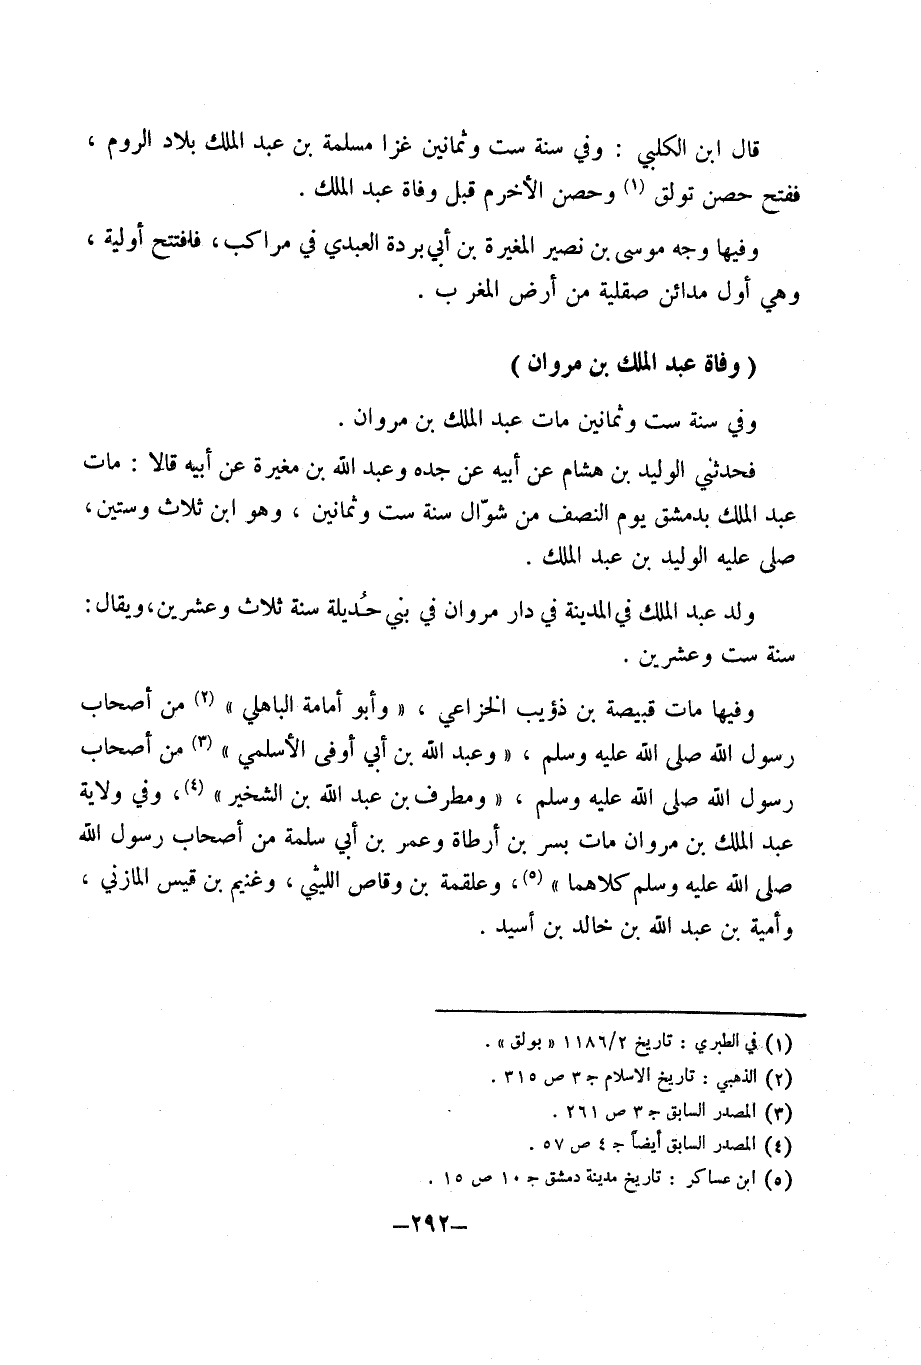 قال ابن الكلبي : وفي سنة ست وثمانين غزا مسلمة بن عبد الملك بلاد الروم ،
ففتح حصن تولق (١) وحصن الأخرم قبل وفاة عبد الملك .
وفيها وجه موسى بن نصير المغيرة بن أبي بردة العبدي في مراكب، فافتتح أولية ،
وهي أول مدائن صقلية من أرض المغر ب .
( وفاة عبد الملك بن مروان )
وفي سنة ست وثمانين مات عبد الملك بن مروان .
فحدثني الوليد بن هشام عن أبيه عن جده وعبد الله بن مغيرة عن أبيه قالا : مات
عبد الملك بدمشق يوم النصف من شوّال سنة ست وثمانين ، وهو ابن ثلاث وستين،
صلى عليه الوليد بن عبد الملك .
ولد عبد الملك في المدينة في دار مروان في بني حُديلة سنة ثلاث وعشرين،ويقال:
سنة ست وعشرين .
وفيها مات قبيصة بن ذؤيب الخزاعي ، « وأبو أمامة الباهلي » (٢) من أصحاب
رسول الله صلى الله عليه وسلم ، « وعبد الله بن أبي أوفى الأسلمي » (٣) من أصحاب
رسول الله صلى الله عليه وسلم ، « ومطرف بن عبد الله بن الشخير » (٤)، وفي ولاية
عبد الملك بن مروان مات بسر بن أرطاة وعمر بن أبي سلمة من أصحاب رسول الله
صلى الله عليه وسلم كلاهما » (٥)، وعلقمة بن وقاص الليثي ، وغنيم بن قيس المازني ،
وأمية بن عبد الله بن خالد بن أسيد .
(١) في الطبري : تاريخ ١١٨٦/٢ « بولق » .
(٢) الذهبي : تاريخ الاسلام جـ ٣ ص ٣١٥ .
(٣) المصدر السابق جـ ٣ ص ٢٦١ .
(٤) المصدر السابق أيضاً جـ ٤ ص ٥٧ .
(٥) ابن عساكر : تاريخ مدينة دمشق جـ ١٠ ص ١٥ .
–٢٩٢–